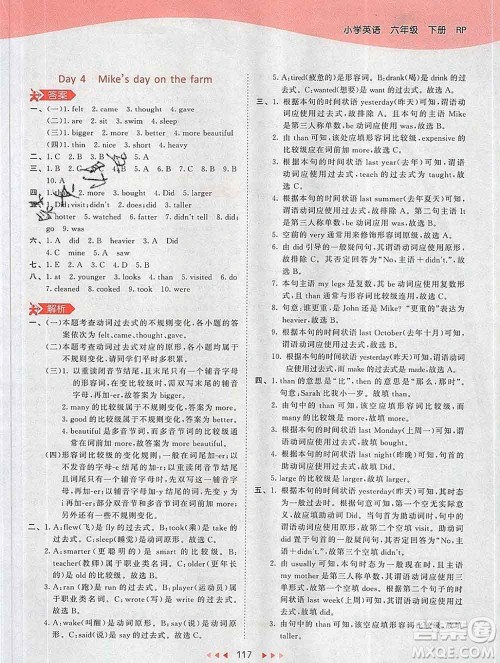 小学英语 六年级 下册 RP
Day 4 Mike's day on the farm
答案
一、(一)1. felt 2. came 3. thought 4. gave
(二)1. see 2. are 3. swim 4. say
(三)1. bigger 2. more 3. more beautiful
(四)1. thin 2. nice 3. heavy 4. many
二、1. C 2. B 3. 5. A
三、1. A 2. C 3. B 4. B 5. A 6. C
7. B 8. C 9. A 10. C
四、1. 2. more 3. bought 4. Did 5. larger
1. Did; visit; didn't 2. does; did 3. taller
hotter 5. watched 6. didn't tell 7. did
go 8. was
六、1. A 2. B heavier 3. D Did 4. A
七、1. E 2. D 3. A 4. B 5. C
八、1. at 2. younger 3. looks 4. than 5. visited
6. cleaned 7. cooked 8. took 9. were
解析
一、(一)本题考查动词过去式的不规则变化,各小题的答
案依次为 felt, came, thought, gave。
(二)本题考查动词过去式对应的原形,各小题的答案
依次为 see, are, swim, say。动词过去式变化多
样,请同学们平时多积累。
(三)1. 以重读闭音节结尾且末尾只有一个辅音字母的
形容词变为比较级时,需要双写末尾的辅音字
母再加-er,故填 bigger。
2. many 的比较级属于不规则变化,为 more。
3. beautiful 是多音节词,多音节词和部分双音节
词的比较级在词前加 more。
(四)形容词比较级的变化规则有:一般在词尾加-er;以
不发音的字母 e 结尾的加-r;以重读闭音节结尾且
末尾只有一个辅音字母的词双写末尾的辅音字母
再加-er;以“辅音字母+y”结尾的变 y 为 i 再加
-er;多音节词和部分双音节词在词前加 more;另
外还有一些不规则的变化。
二、1. A:flew(飞)是 fly 的过去式。B:took(带)是 take
的过去式。C:sleep(睡觉)是动词原形。故选 C。
2. A:smarter(更聪明的)是 smart 的比较级。B:
teacher(教师)是名词。C:bigger(更大的)是 big 的
比较级。故选 B。
3. A:player(运动员)是名词。B:played(玩)是动词
play 的过去式。C:wrote(写)是动词 write 的过去
式。故选 A。
4. A:say(说)是动词原形。B:came(来)是 come 的
过去式。C:was(是)是 am/is 的过去式。故选 A。
5. A:tired(疲惫的)是形容词。B:drank(喝)是 drink 的过
去式。C:wanted(想要)是 want 的过去式。故选 A。
三、1. 根据本句的时间状语 yesterday(昨天)可知,谓语动
词应使用过去式,故排除 A、B。又因为主语 Mike
是第三人称单数,be 动词应使用 was,故选 C。
2. 由句中的 than 可知,该空应使用比较级,expensive
的比较级应在词前加 more。故选 B。
3. 根据本句的时间状语 last year(去年)可知,谓语动
词应使用过去式,teach 的过去式是 taught,故选 A。
4. 根据本句的时间状语 last summer(去年夏天)可知,
谓语动词应使用过去式,故排除 A。第二句主语 It
是第三人称单数,故选 B。
5. 空前的 very 通常用来修饰形容词原级,故选 C。
6. 由 did 可知,该空应使用动词原形,排除 B。根据句
意可知本句为否定句,故选 A。
7. 本句主语 my legs 是复数,be 动词应使用 are,故
选 B。
8. 第一句的意思是“更重的是 John 还是 Mike?”“更重的”表达为
heavier,故选 C。
9. 根据本句的时间状语 last October(去年十月)可知,
谓语动词应使用过去式,故选 A。
10. 根据本句的时间状语 yesterday 可知,谓语动词应使
用过去式,make 的过去式是 made,故选 C。
四、1. than 的意思是“比”,then 的意思是“那么、那时”。
句意:Sarah 比我小一岁。故填 than。
2. 由句中的 than 可知,该空应填形容词原级或比较
级,故填 more。
3. 根据本句的时间状语 last Monday(上周一)可知,谓
语动词应使用过去式,故填 bought。
4. 根据本句的时间状语 last night 可知,助动词应使用
过去式,故填 Did。
5. 由句中的 than 可知,该空应填形容词比较级,故
填 larger。
五、1. 根据本句的时间状语 last weekend(上周末)可知,本
句为一般过去时,第一个空应填 Did。后面实义动
词使用原形,第二个空应填 visit。否定回答助动词
要与问句保持一致,第三个空应填 didn't。
2. 由 usually 可知,第一个空所在句子是一般现在时,
助动词应使用 does。由 last Sunday 可知,第二个空
所在句子是一般过去时,助动词应使用 did。
3. 由句中的 than 可知,该空应填形容词比较级,故
填 taller。
117